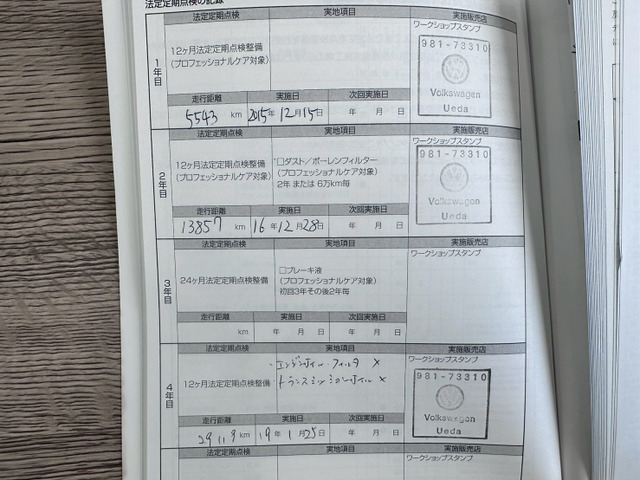 法定定期点検の記録
法定定期点検 実地項目 実施販売店
1年目
12ヶ月法定定期点検整備
(プロフェッショナルケア対象)
ワークショップスタンプ
981-73310
Volkswagen
Ueda
走行距離 実施日 次回実施日
5543 km 2015年12月15日 年 月 日
法定定期点検 実地項目 実施販売店
2年目
12ヶ月法定定期点検整備
(プロフェッショナルケア対象)
□ダスト/ポーレンフィルター
(プロフェッショナルケア対象)
2年 または 6万km毎
ワークショップスタンプ
981-73310
Volkswagen
Ueda
走行距離 実施日 次回実施日
13857 km 16年12月28日 年 月 日
法定定期点検 実地項目 実施販売店
3年目
24ヶ月法定定期点検整備
□ブレーキ液
(プロフェッショナルケア対象)
初回3年その後2年毎
ワークショップスタンプ
走行距離 実施日 次回実施日
km 年 月 日 年 月 日
法定定期点検 実地項目 実施販売店
4年目
12ヶ月法定定期点検整備
エンジンオイル・フィルタ ×
トランスミッションオイル ×
ワークショップスタンプ
981-73310
Volkswagen
Ueda
走行距離 実施日 次回実施日
km 19年1月25日 年 月 日
法定定期点検 実地項目 実施販売店
ワークショップスタンプ